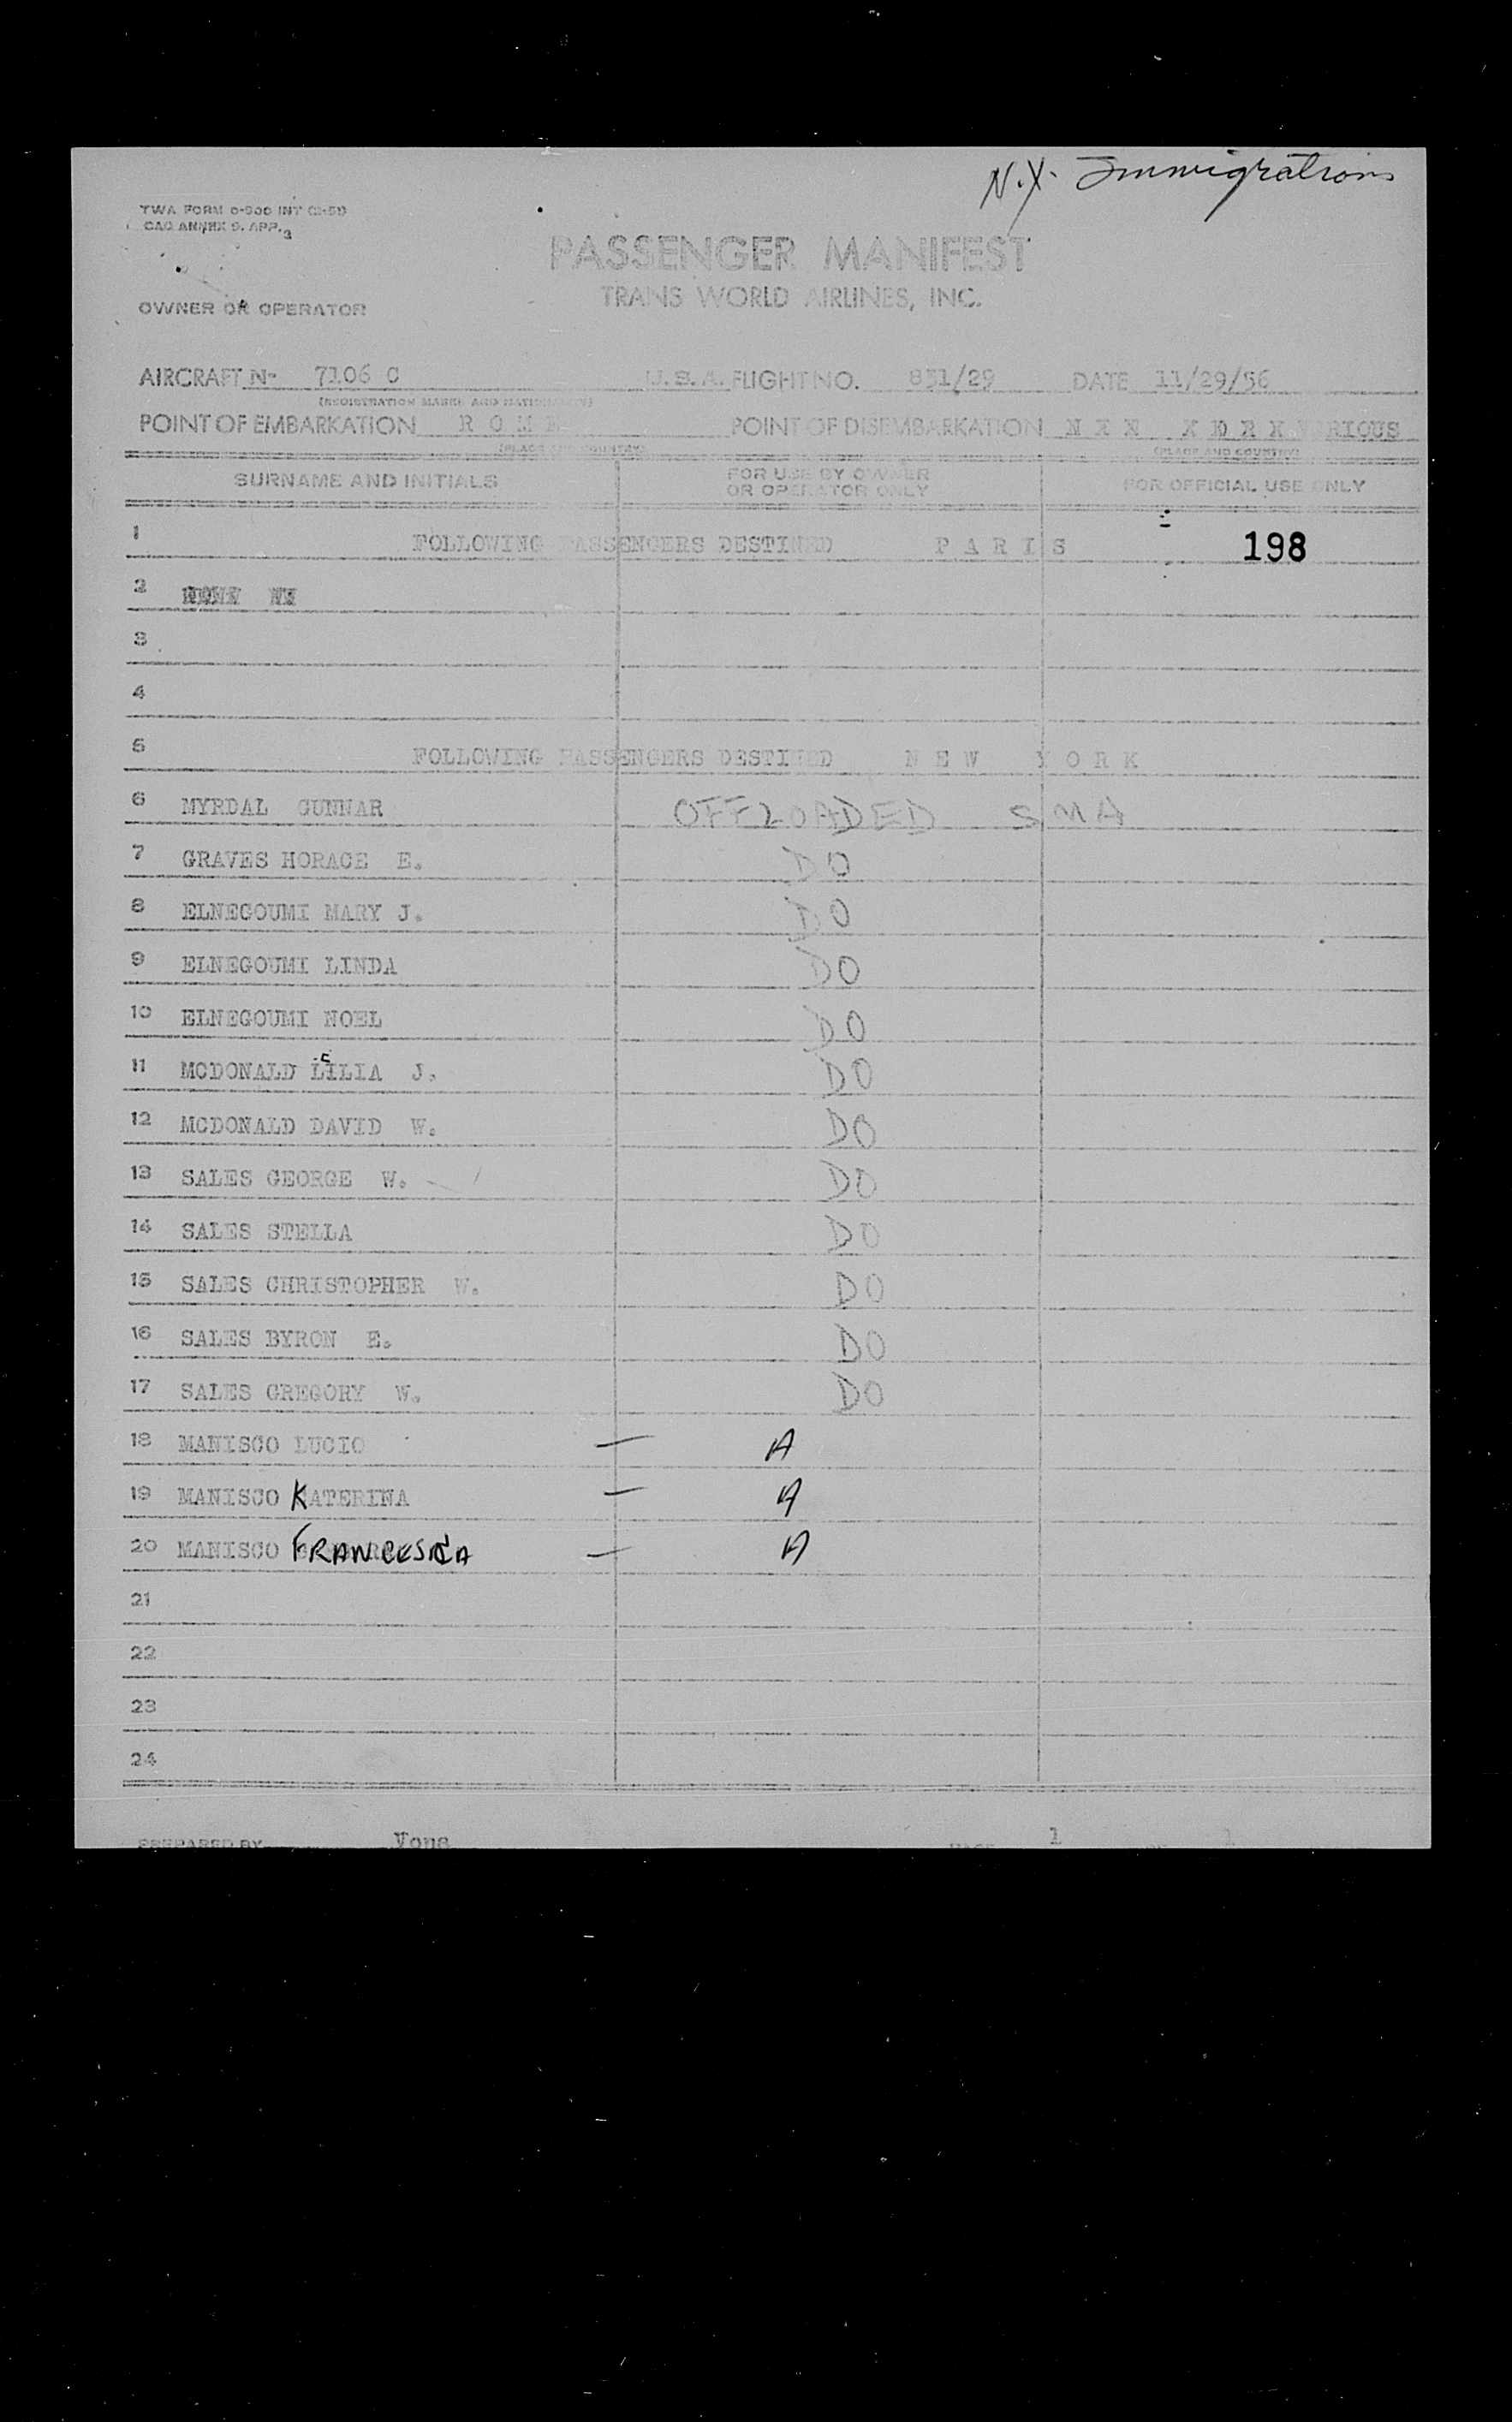 N.Y. Immigrations
TWA FORM 0-900 INT (2-51)
CAO ANNEX 9. APP. 3
PASSENGER MANIFEST
TRANS WORLD AIRLINES, INC.
OWNER OR OPERATOR
AIRCRAFT No 7106 C U.S.A. FLIGHT NO. 831/29 DATE 11/29/56
(REGISTRATION MARKS AND NATIONALITY)
POINT OF EMBARKATION R O M E POINT OF DISEMBARKATION VARIOUS
(PLACE AND COUNTRY) (PLACE AND COUNTRY)
SURNAME AND INITIALS FOR USE BY OWNER OR OPERATOR ONLY FOR OFFICIAL USE ONLY
1 FOLLOWING PASSENGERS DESTINED P A R I S 198
2
3
4
5 FOLLOWING PASSENGERS DESTINED N E W Y O R K
6 MYRDAL GUNNAR OFFLOADED SMA
7 GRAVES HORACE E. DO
8 ELNEGOUMI MARY J. DO
9 ELNEGOUMI LINDA DO
10 ELNEGOUMI NOEL DO
11 MCDONALD LILIA J. DO
12 MCDONALD DAVID W. DO
13 SALES GEORGE W. DO
14 SALES STELLA DO
15 SALES CHRISTOPHER W. DO
16 SALES BYRON E. DO
17 SALES GREGORY W. DO
18 MANISCO LUCIO — A
19 MANISCO KATERINA — A
20 MANISCO FRANCESCA — A
21
22
23
24
PREPARED BY Vona PAGE 1 OF 1